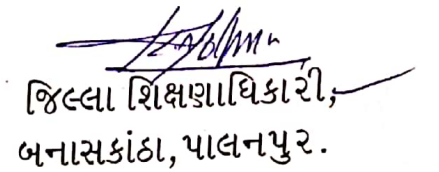 જિલ્લા શિક્ષણાધિકારી,
બનાસકાંઠા, પાલનપુર.